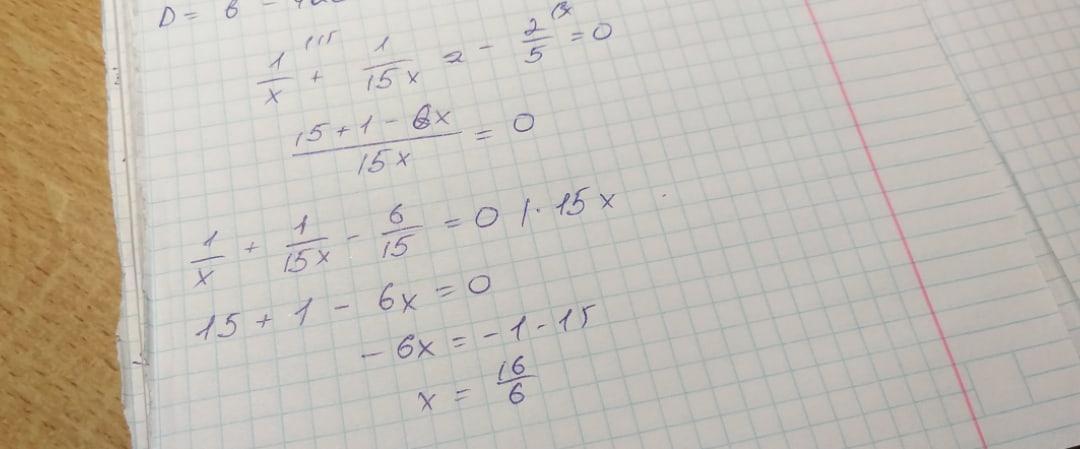 D = b -
1/x + 1/15x = - 2/5 = 0
15 + 1 - 6x / 15x = 0
1/x + 1/15x - 6/15 = 0 | · 15x
15 + 1 - 6x = 0
- 6x = - 1 - 15
x = 16/6